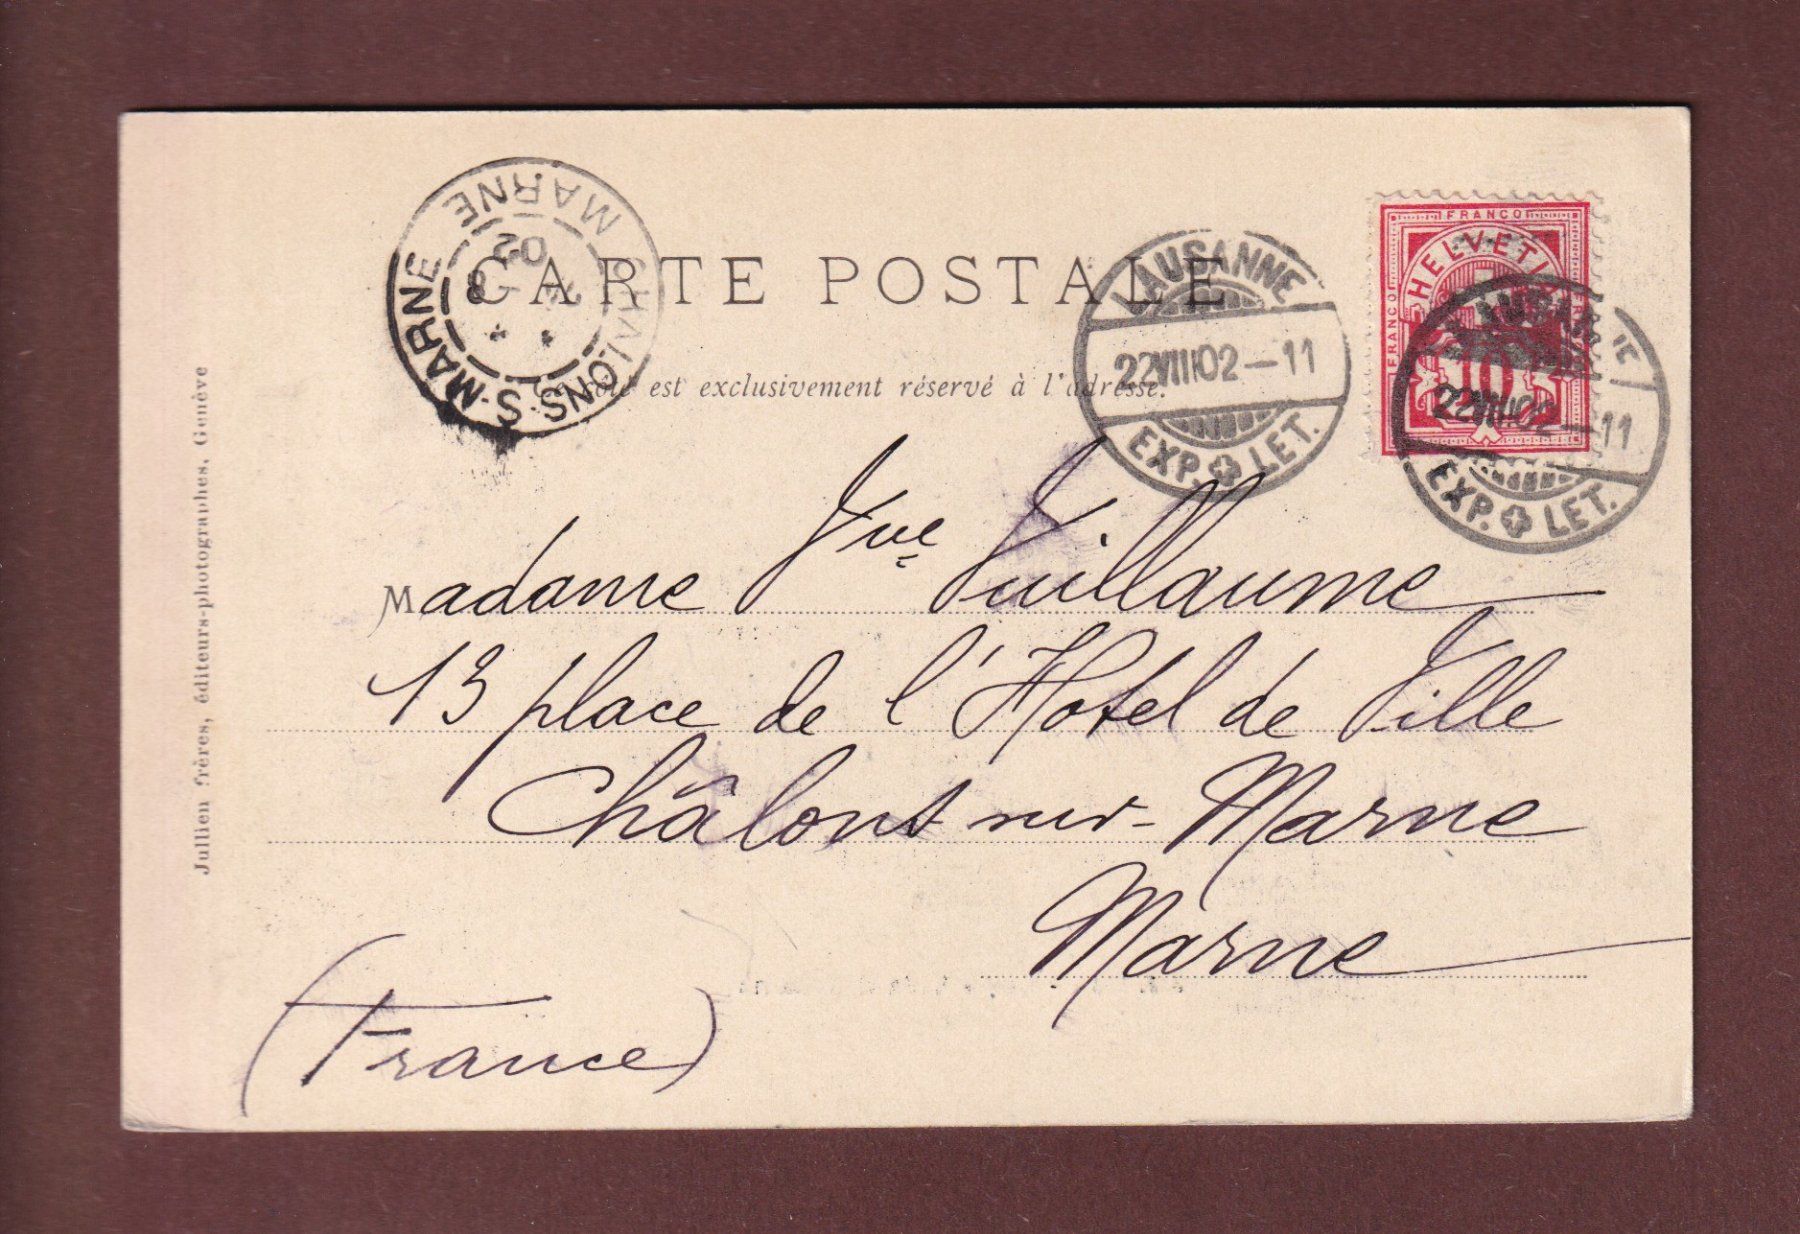 CARTE POSTALE
est exclusivement réservé à l'adresse.
CHALONS-S-MARNE
MARNE
8
02
LAUSANNE
22 VIII 02 – 11
EXP. LET.
FRANCO
FRANCO
HELVETIA
10
22 VIII 02 – 11
EXP. LET.
Madame Vve Vuillaume
13 place de l'Hotel de Ville
Châlons sur-Marne
Marne
(France)
Jullien frères, éditeurs-photographes, Genève